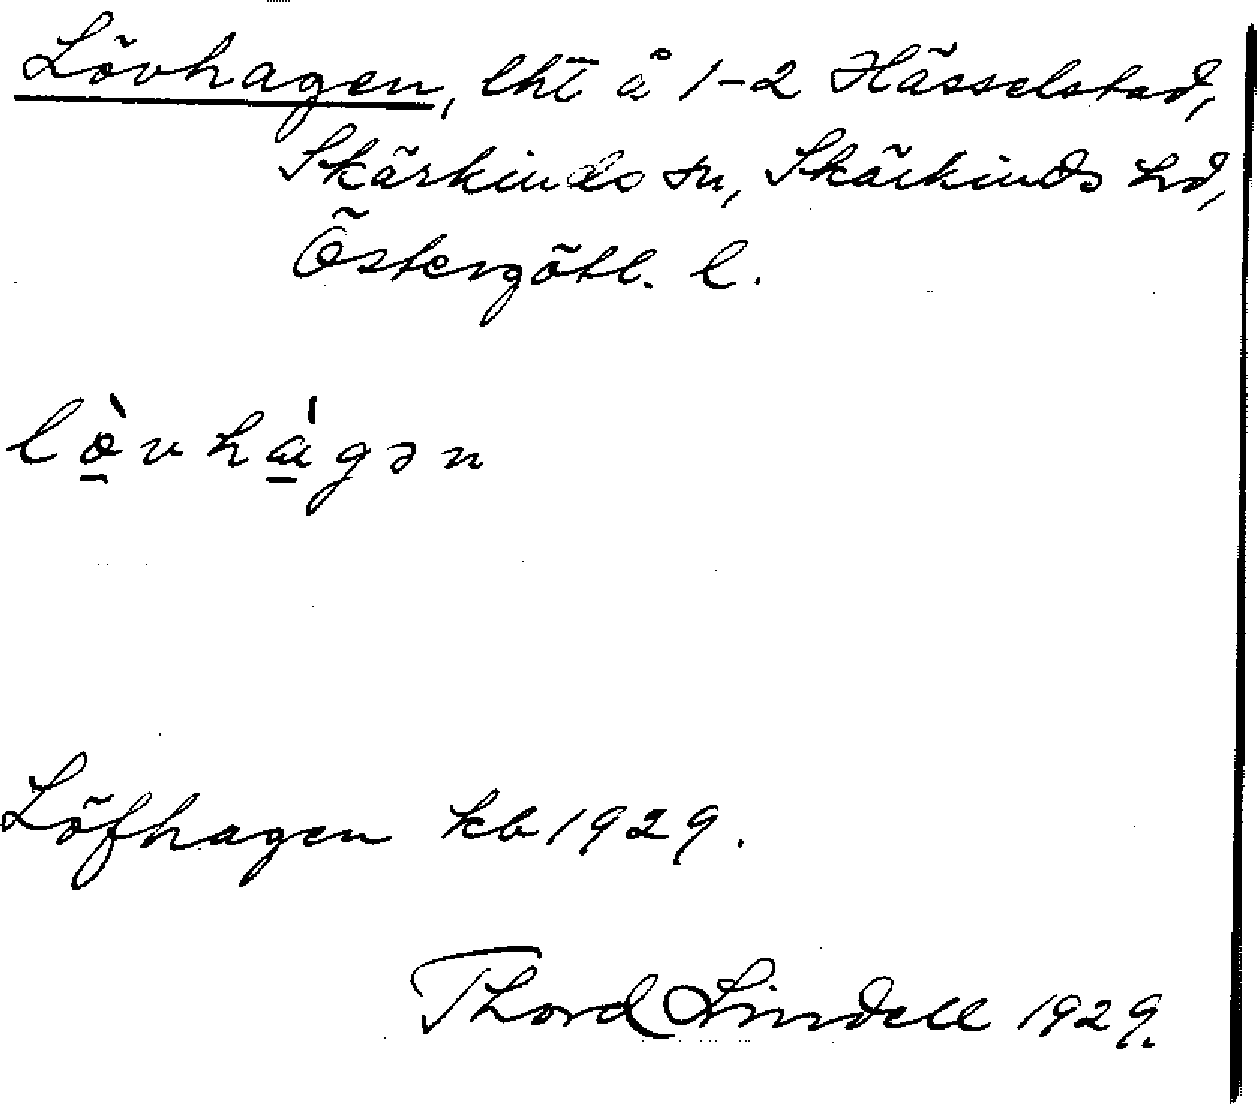 Lövhagen, lht å 1-2 Hässelstad,
Skärkinds sn, Skärkinds hd,
Östergötl. l.
lö̀vhágən
Löfhagen kb 1929.
Thord Lindell 1929.